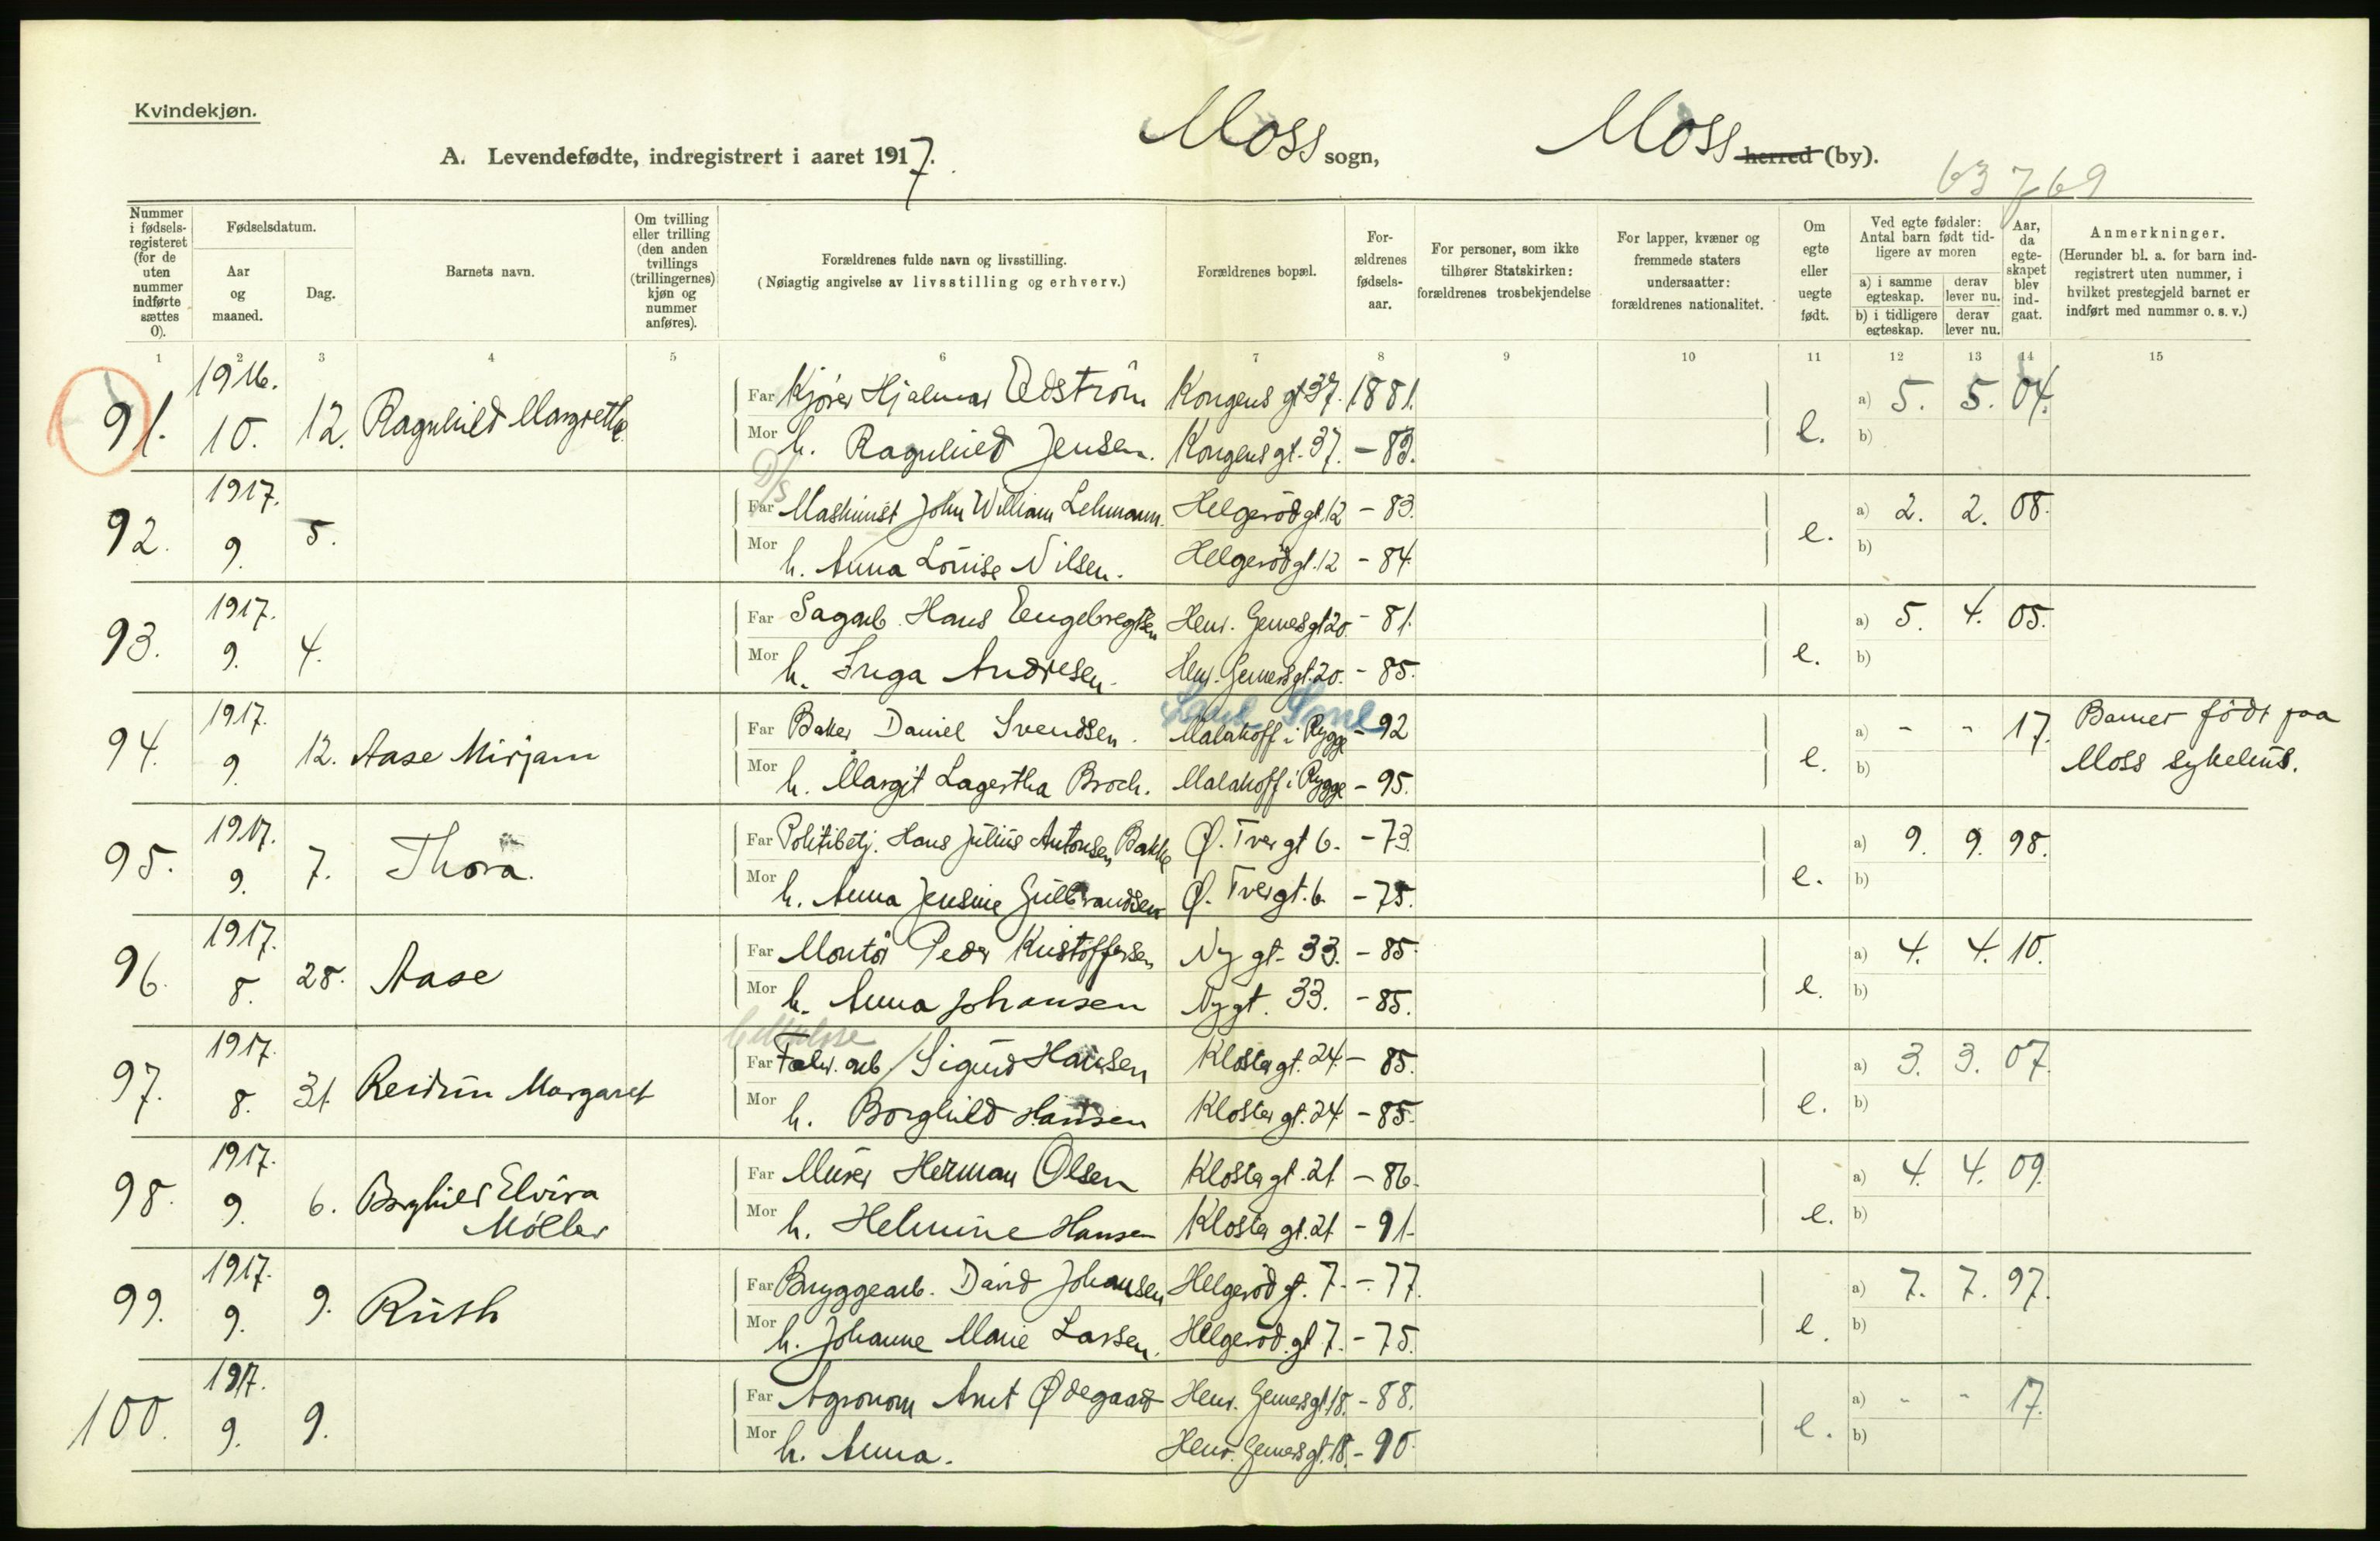 Kvindekjøn.
A. Levendefødte, indregistrert i aaret 1917. Moss sogn, Moss herred (by).
63 769
Nummer i fødsels-registeret (for de uten nummer indførte sættes 0).
Fødselsdatum.
Aar og maaned.
Dag.
Barnets navn.
Om tvilling eller trilling (den anden tvillings (trillingernes) kjøn og nummer anføres).
Forældrenes fulde navn og livsstilling.
(Nøiagtig angivelse av livsstilling og erhverv.)
Forældrenes bopæl.
For-ældrenes fødsels-aar.
For personer, som ikke tilhører Statskirken: forældrenes trosbekjendelse
For lapper, kvæner og fremmede staters undersaatter: forældrenes nationalitet.
Om egte eller uegte født.
Ved egte fødsler: Antal barn født tid-ligere av moren
a) i samme egteskap. derav lever nu.
b) i tidligere egteskap. derav lever nu.
Aar, da egte-skapet blev ind-gaat.
Anmerkninger.
(Herunder bl. a. for barn ind-registrert uten nummer, i hvilket prestegjeld barnet er indført med nummer o. s. v.)
1 2 3 4 5 6 7 8 9 10 11 12 13 14 15
1916.
91. 10. 12. Ragnhild Margrethe Far Kjører Hjalmar Edström Kongens gt 37. 1881. e. a) 5. 5. 04.
Mor h. Ragnhild Jensen. Kongens gt. 37. - 83. b)
D/S
1917.
92. 9. 5. Far Maskinist John William Lehmann. Helgerød gt. 12 - 83. e. a) 2. 2. 08.
Mor h. Anna Louise Nilsen. Helgerød gt. 12 - 84. b)
1917.
93. 9. 4. Far Sagarb. Hans Engebregtsen Henr. Gerners gt 20. - 81. e. a) 5. 4. 05.
Mor h. Inga Andresen. Henr. Gerners gt. 20. - 85. b)
1917.
94. 9. 12. Aase Mirjam Far Baker Daniel Svendsen. Malakoff i Rygge - 92 e. a) - - 17. Barnet født paa
Mor h. Margit Lagertha Broch. Malakoff i Rygge - 95. b) Moss sykehus.
1917.
95. 9. 7. Thora. Far Politibetj. Hans Julius Antonsen Bakke Ø. Tver gt 6. - 73. e. a) 9. 9. 98.
Mor h. Anna Jensine Gulbrandsen Ø. Tvergt. 6. - 75. b)
1917.
96. 8. 28. Aase Far Montør Peder Kristoffersen Ny gt. 33. - 85. e. a) 4. 4. 10.
Mor h. Anna Johansen Ny gt. 33. - 85. b)
Cellulose
1917.
97. 8. 31. Reidun Margaret Far Fabr. arb. Sigurd Hansen Kloster gt. 24. - 85. e. a) 3. 3. 07.
Mor h. Borghild Hansen Kloster gt. 24. - 85. b)
1917.
98. 9. 6. Borghild Elvira Far Murer Herman Olsen Kloster gt. 21. - 86. e. a) 4. 4. 09.
Møller Mor h. Helmine Hansen Kloster gt. 21 - 91. b)
1917.
99. 9. 9. Ruth Far Bryggearb. David Johansen Helgerød gt. 7. - 77. e. a) 7. 7. 97.
Mor h. Johanne Marie Larsen. Helgerød. gt 7. - 75. b)
1917.
100. 9. 9. Far Agronom Arnt Ødegaard Henr. Gerners gt. 18. - 88. e. a) - - 17.
Mor h. Anna. Henr. Gerners gt. 18. - 90. b)